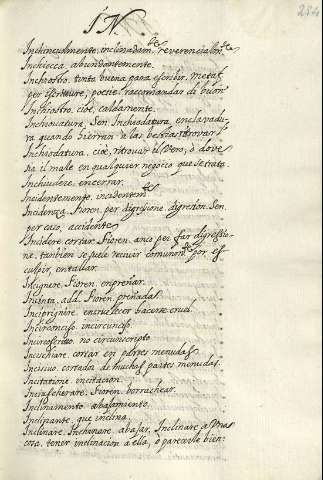 IN.
234
Inchinevolmente, inclinadam.te reverencialm.te
Inchiocca, abundantemente.
Inchiostro, tinta buena para escribir, metaf.
per scritture, poesie, raccordandas di buon
Inchiostro, cioè, caldamente.
Inchiovatura, Sen. Inchiodatura, enclavadu-
ra quando hierran a las bestias, ritrovar l'
Inchiodatura, cioè, ritrovar il vero, o dove
sia il male en qualquier negocio que se trata.
Inchiudere, encerrar.
Incidentemente, incidentem.te
Incidenza, Fioren. per digresione, digresion, Sen.
per caso, accidente
Incidere, cortar, Fioren. anco per far digressio-
ne, tambien se suele recivir comunm.te por es-
culpir, entallar.
Incignere, Fioren. enpreñar.
Incinta, add. Fioren. preñada.
Incriprignire, encruelecer hacerse cruel.
Incirconciso, incircunciso.
Incircoscritto, no circunscripto
Incischiare, cortar en partes menudas.
Inciso, cortado de muchas partes menudas.
Incitatione, incitacion.
Fioren. borrachear.
Inclinamento, abajamiento.
Inclinante, que inclina.
Inclinare, Inchinare, abajar, Inclinare a
cosa, tener inclinacion a ella, o parecerle bien.